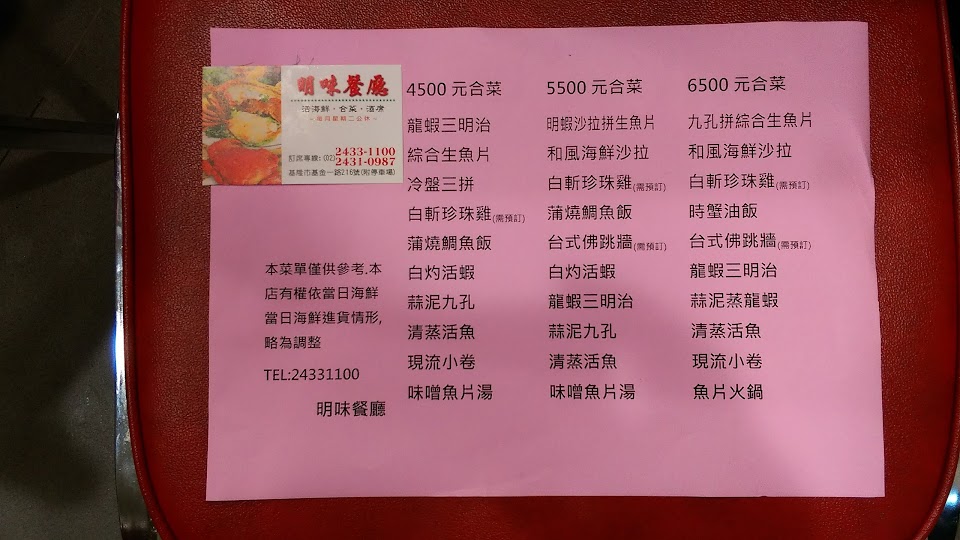 明味餐廳
活海鮮・合菜・酒席
~每月星期二公休~
訂席專線:(02)2433-1100
2431-0987
基隆市基金一路216號(附停車場)
本菜單僅供參考.本
店有權依當日海鮮
當日海鮮進貨情形,
略為調整
TEL:24331100
明味餐廳
4500 元合菜
龍蝦三明治
綜合生魚片
冷盤三拼
白斬珍珠雞(需預訂)
蒲燒鯛魚飯
白灼活蝦
蒜泥九孔
清蒸活魚
現流小卷
味噌魚片湯
5500 元合菜
明蝦沙拉拼生魚片
和風海鮮沙拉
白斬珍珠雞(需預訂)
蒲燒鯛魚飯
台式佛跳牆(需預訂)
白灼活蝦
龍蝦三明治
蒜泥九孔
清蒸活魚
味噌魚片湯
6500 元合菜
九孔拼綜合生魚片
和風海鮮沙拉
白斬珍珠雞(需預訂)
時蟹油飯
台式佛跳牆(需預訂)
龍蝦三明治
蒜泥蒸龍蝦
清蒸活魚
現流小卷
魚片火鍋